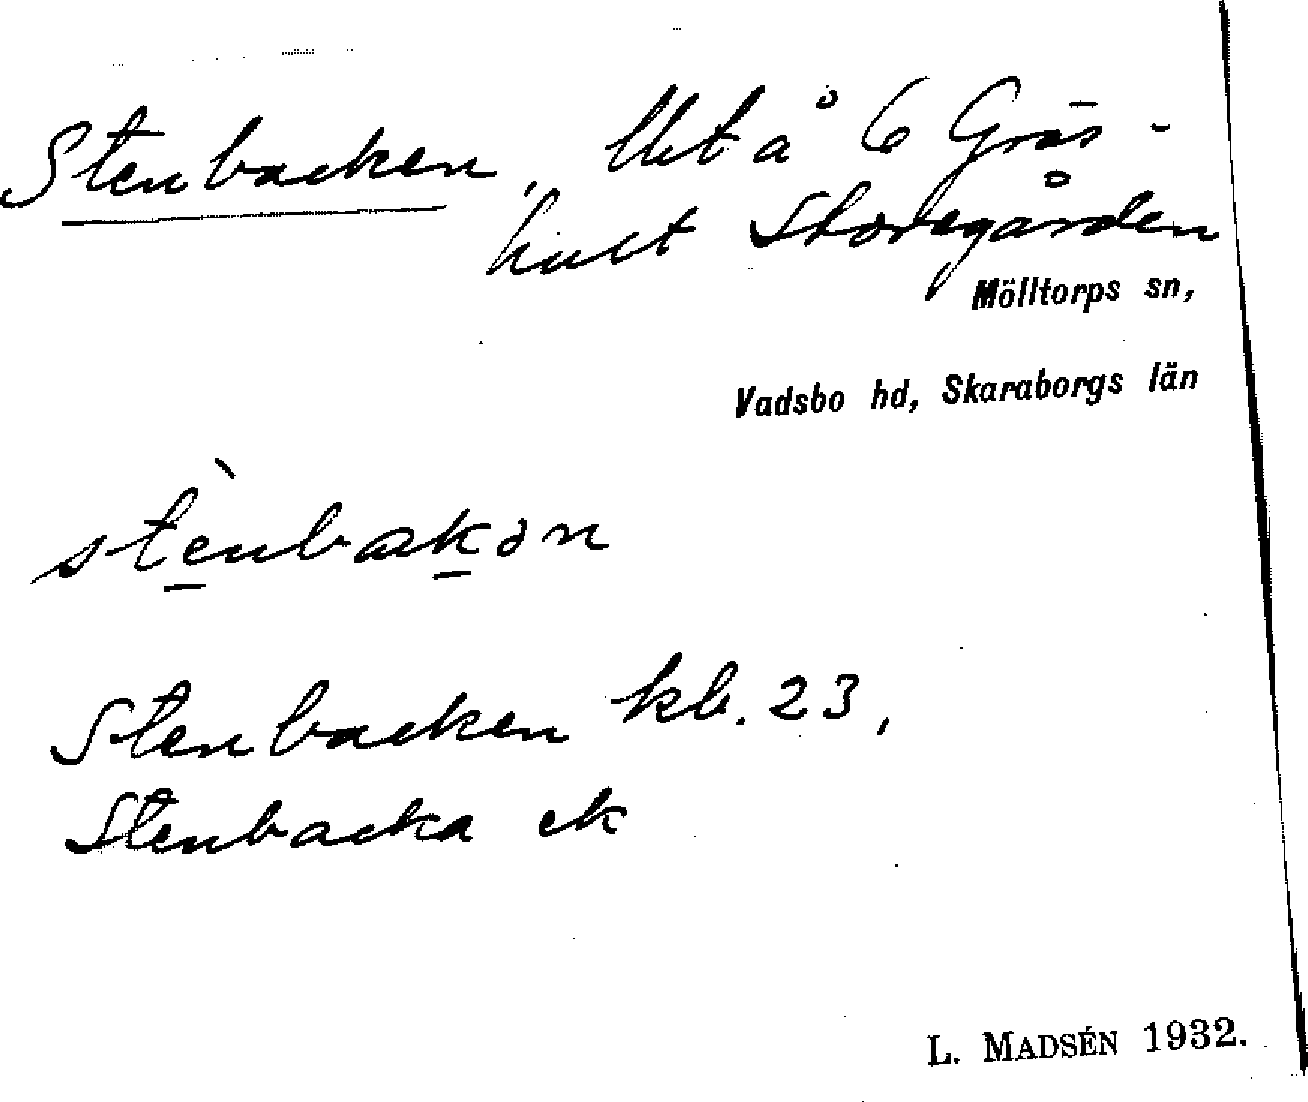 Stenbacken, lht å 6 Gräs-
hult Storegården
Mölltorps sn,
Vadsbo hd, Skaraborgs län
stènbakən
Stenbacken kb. 23,
Stenbacka ek
L. MADSÉN 1932.